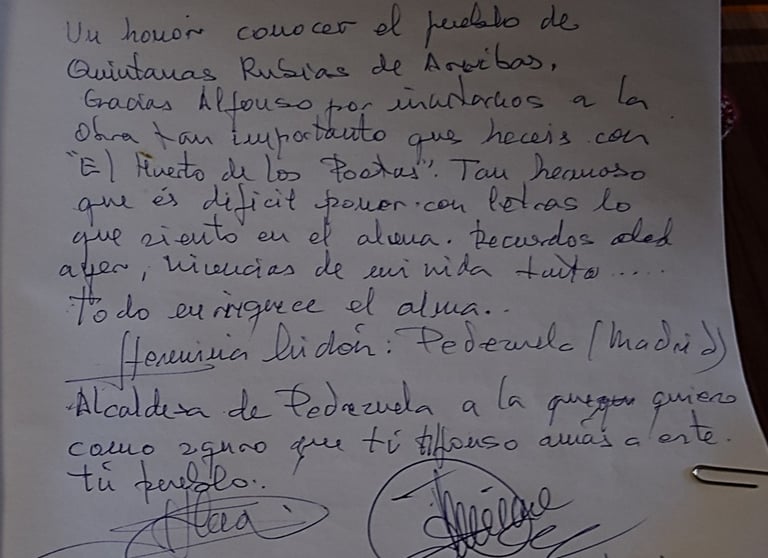 Un honor conocer el pueblo de
Quintanas Rubias de Arribas,
Gracias Alfonso por invitarnos a la
Obra tan importante que haceis con
"El Huerto de los Poetas". Tan hermoso
que és dificil poner con letras lo
que siento en el alma. Recuerdos del
ayer, vivencias de mi vida
todo enriquece el alma..
Herminia : Pedrezuela (Madrid)
Alcaldesa de Pedrezuela a la quiero
como que tú Alfonso amas a este.
tú pueblo..